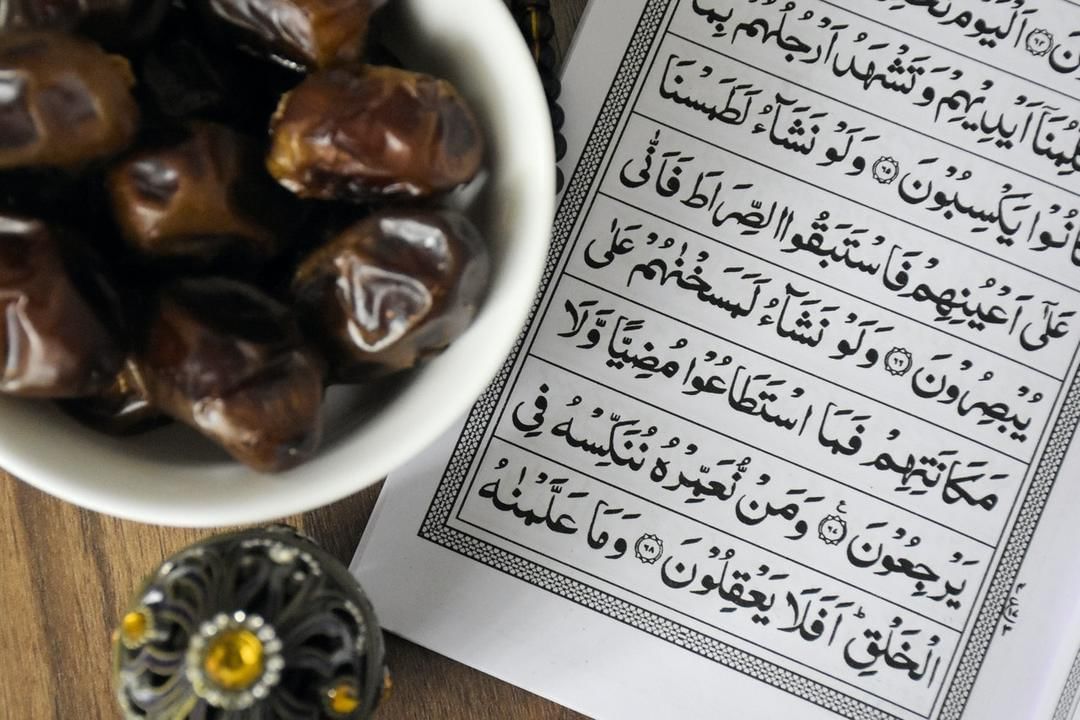 اَلْيَوْمَ
اَيْدِيْهِمْ وَتَشْهَدُ اَرْجُلُهُمْ بِمَا
كَانُوْا يَكْسِبُوْنَ ۝٦٥ وَلَوْ نَشَآءُ لَطَمَسْنَا
عَلٰۤى اَعْيُنِهِمْ فَاسْتَبَقُوا الصِّرَاطَ فَاَنّٰى
يُبْصِرُوْنَ ۝٦٦ وَلَوْ نَشَآءُ لَمَسَخْنٰهُمْ عَلٰى
مَكَانَتِهِمْ فَمَا اسْتَطَاعُوْا مُضِيًّا وَّلَا
يَرْجِعُوْنَ ۝٦٧ؑ وَمَنْ نُّعَمِّرْهُ نُنَكِّسْهُ فِى
الْخَلْقِؕ اَفَلَا يَعْقِلُوْنَ ۝٦٨ وَمَا عَلَّمْنٰهُ